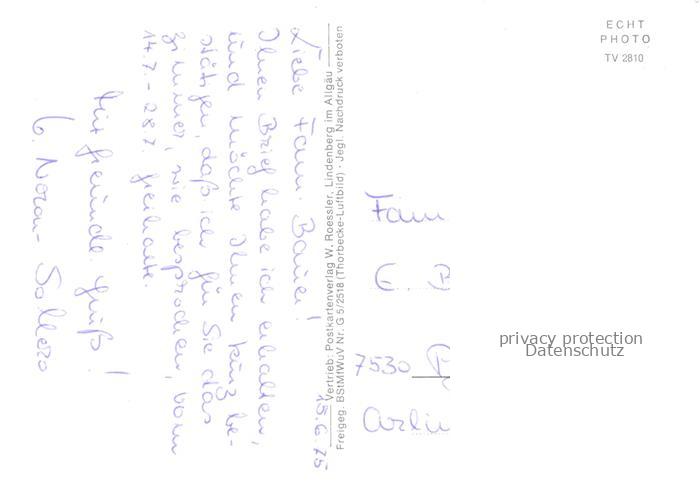 15.6.75
Liebe Fam. Bauer!
Ihnen Brief habe ich erhalten,
und möchte Ihnen kurz be-
stätigen, daß ich für Sie das
Zimmer, wie besprochen, vom
14.7. - 28.7. freihalte.
Mit freundl. Gruß!
Vertrieb: Postkartenverlag W. Roessler, Lindenberg im Allgäu
Freigeg. BStMfWuV Nr. G 5/2518 (Thorbecke-Luftbild) · Jegl. Nachdruck verboten
ECHT
PHOTO
TV 2810
Fam
E. B
7530 P
privacy protection
Datenschutz